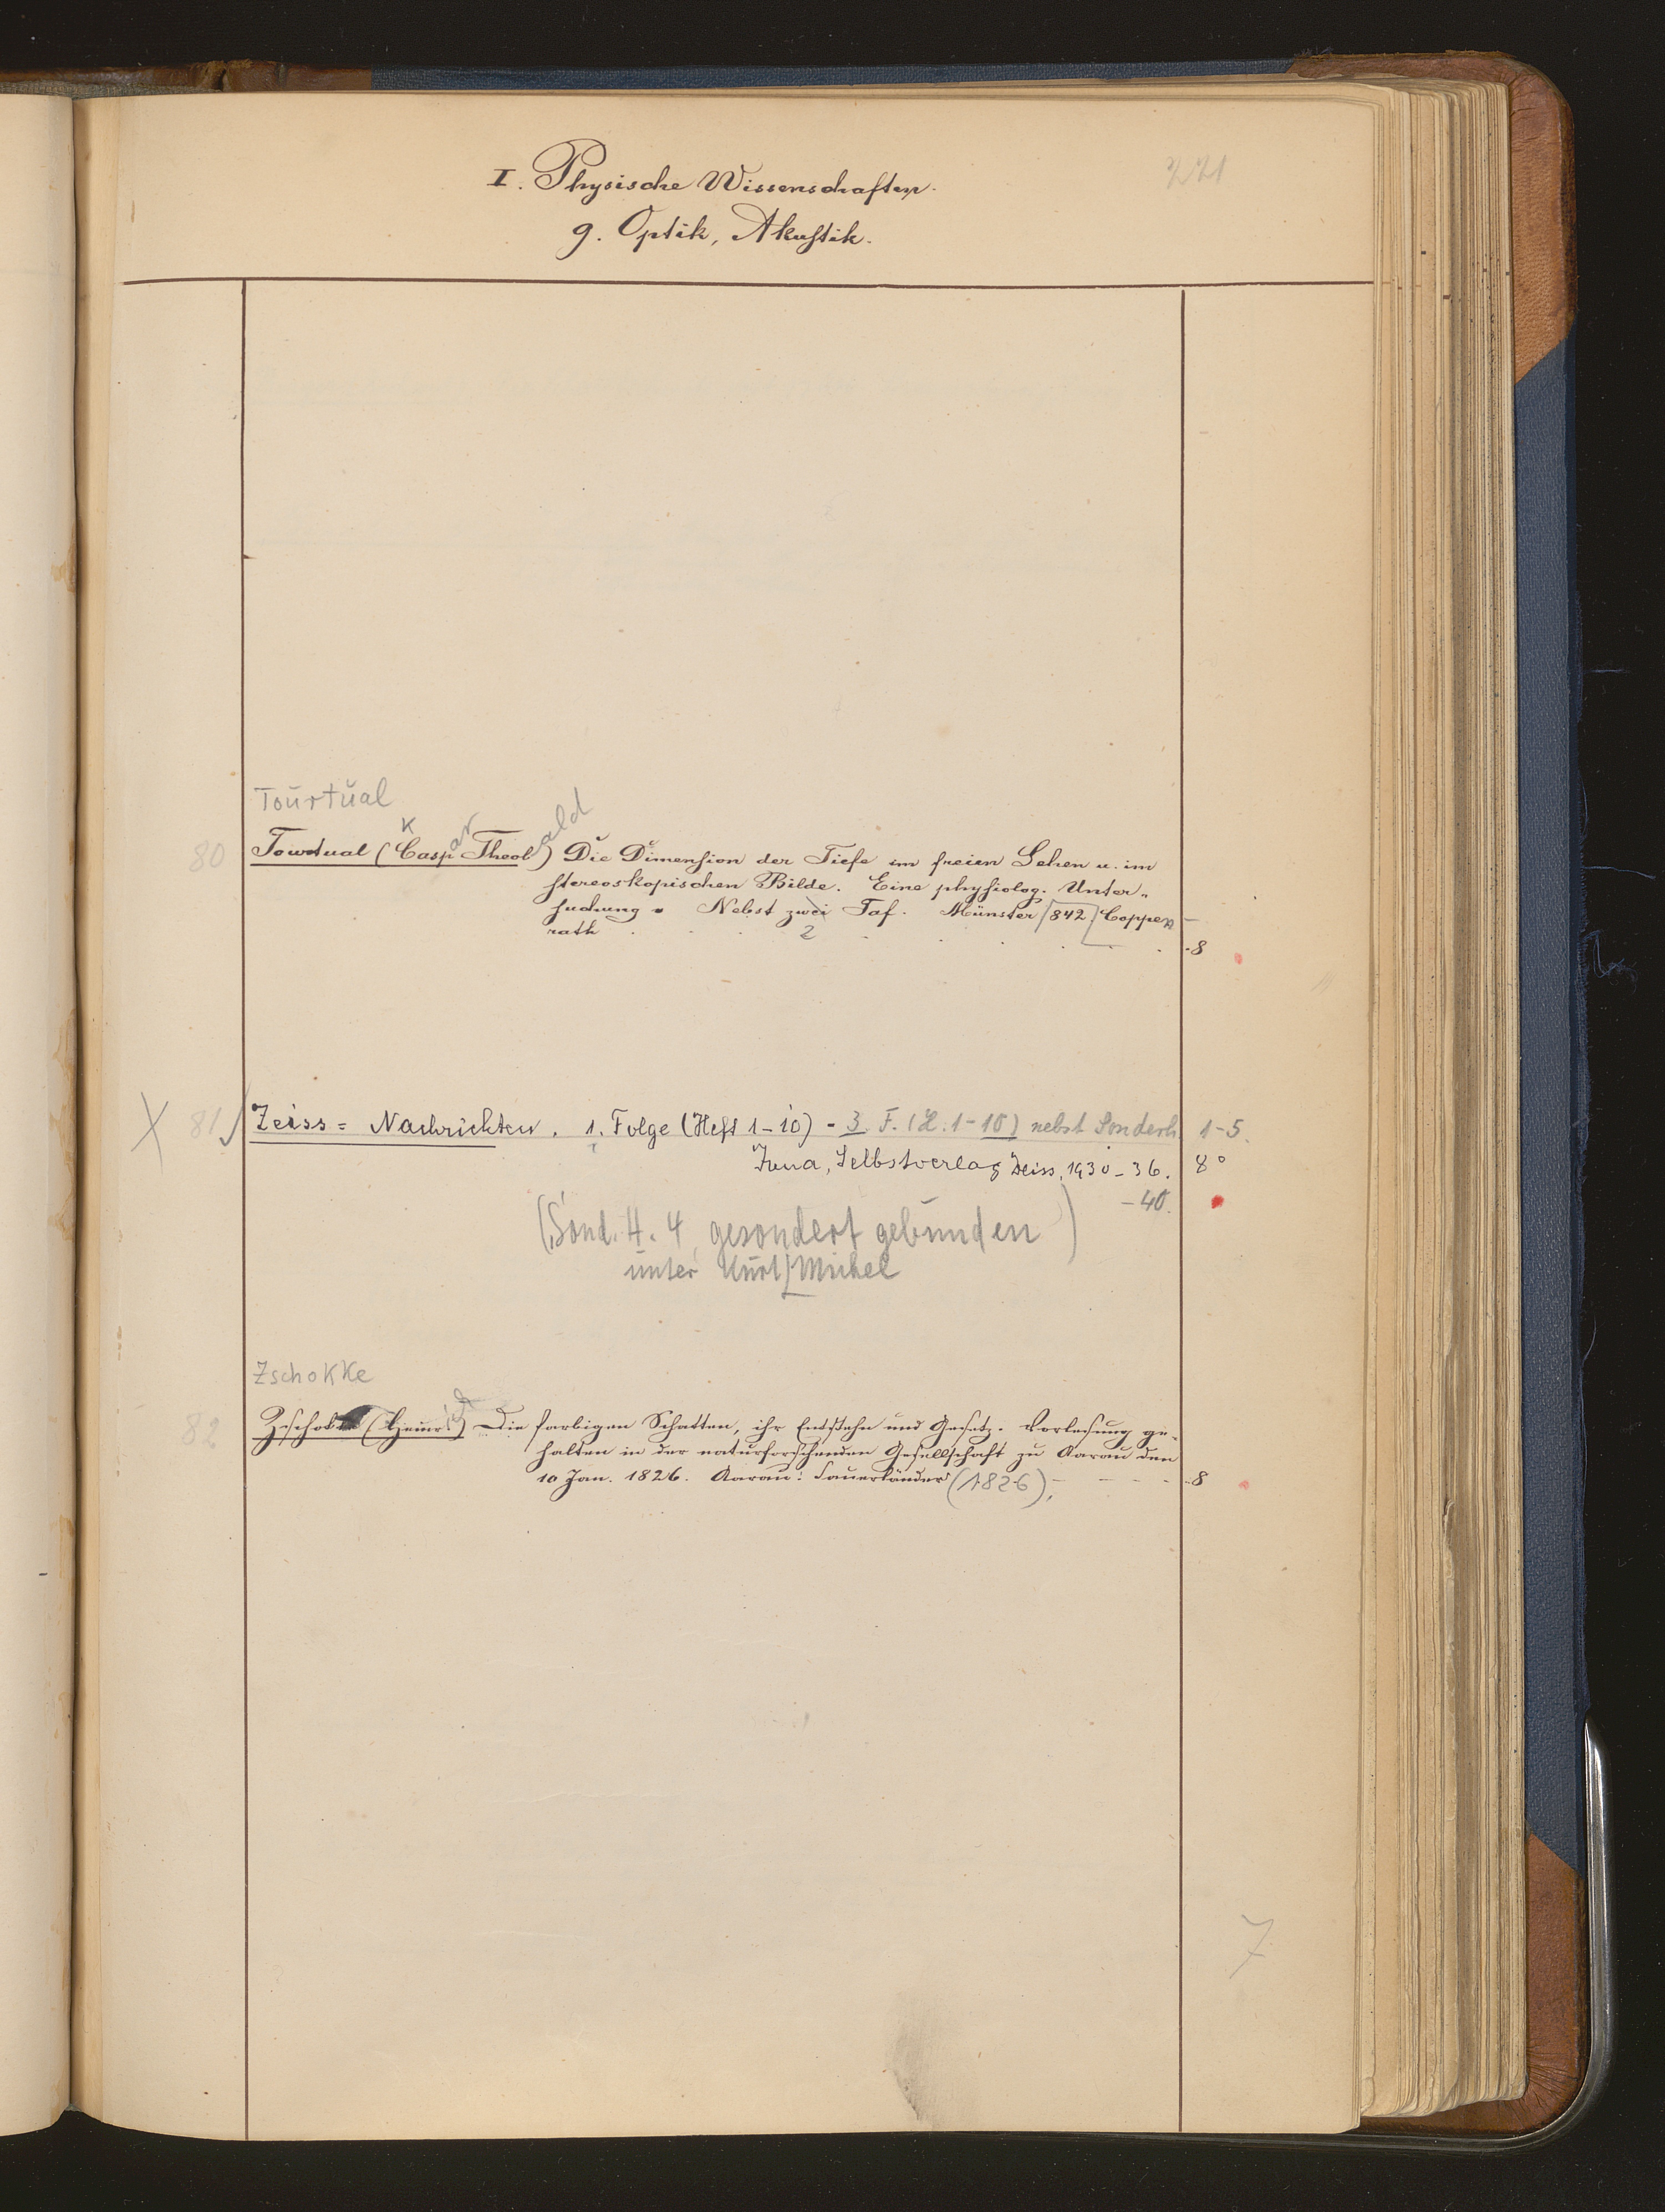 221
I. Physische Wissenschaften.
9. Optik, Akustik.
Tourtual
K ar ald
80 Tourtual (Casp Theob) Die Dimension der Tiefe im freien Sehen u. im
stereoskopischen Bilde. Eine physiolog. Unter-
suchung. Nebst zwei Taf. Münster 842 Coppen-
rath . . . 2 . . . . . 8
X 81 Zeiss = Nachrichten. 1. Folge (Heft 1-10) - 3. F. (H. 1-10) nebst Sonderh. 1-5.
Jena, Selbstverlag Zeiss, 1930-36. 8°
-40.
(Sond. H. 4 gesondert gebunden)
unter Kurt Michel
Zschokke
82 Zschokke (Heinrich) Die farbigen Schatten, ihr Entstehn und Gesetz. Vorlesung ge-
halten in der naturforschenden Gesellschaft zu Aarau den
10 Jan. 1826. Aarau: Sauerländer (1826). - - - - 8
7